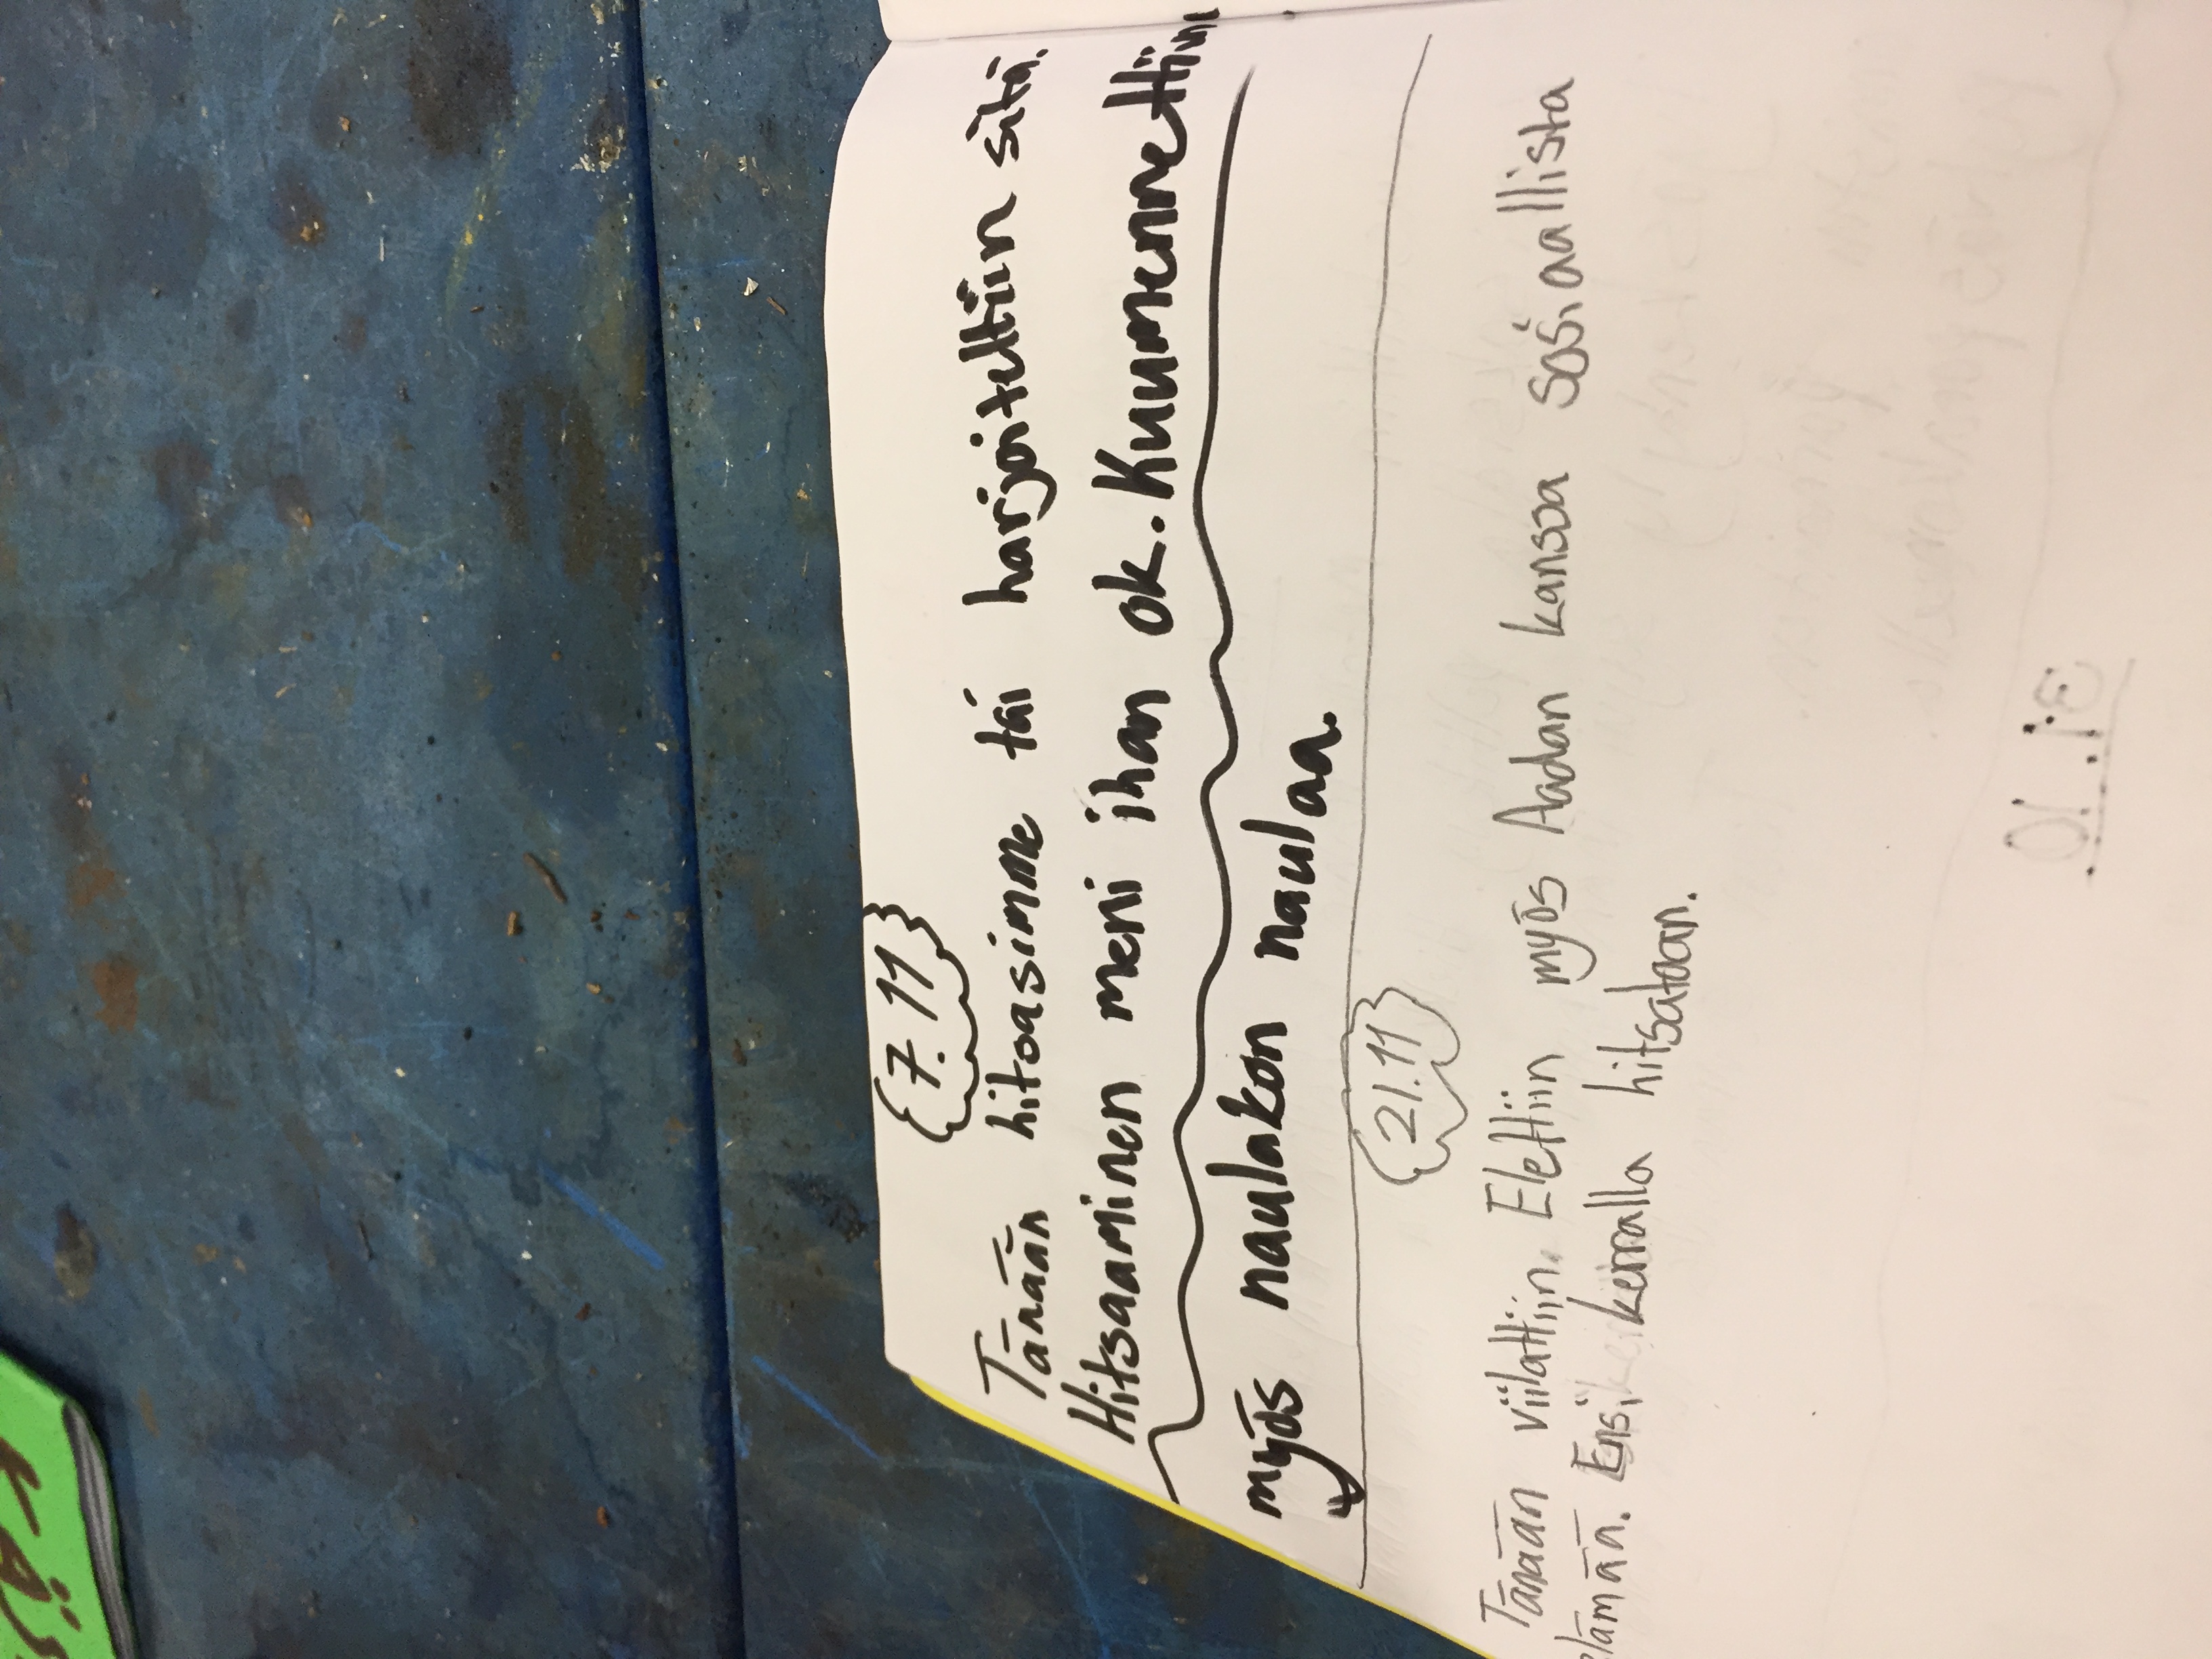 7.11
Tänään hitoasimme tai harjoiteltiin sitä.
Hitsaaminen meni ihan ok. Kuumennettiin
myös naulakon naulaa.
21.11
Tänään viilattiin. Elettiin myös Aadan kansa sosiaallista
elämää. Ensi kerralla hitsataan.